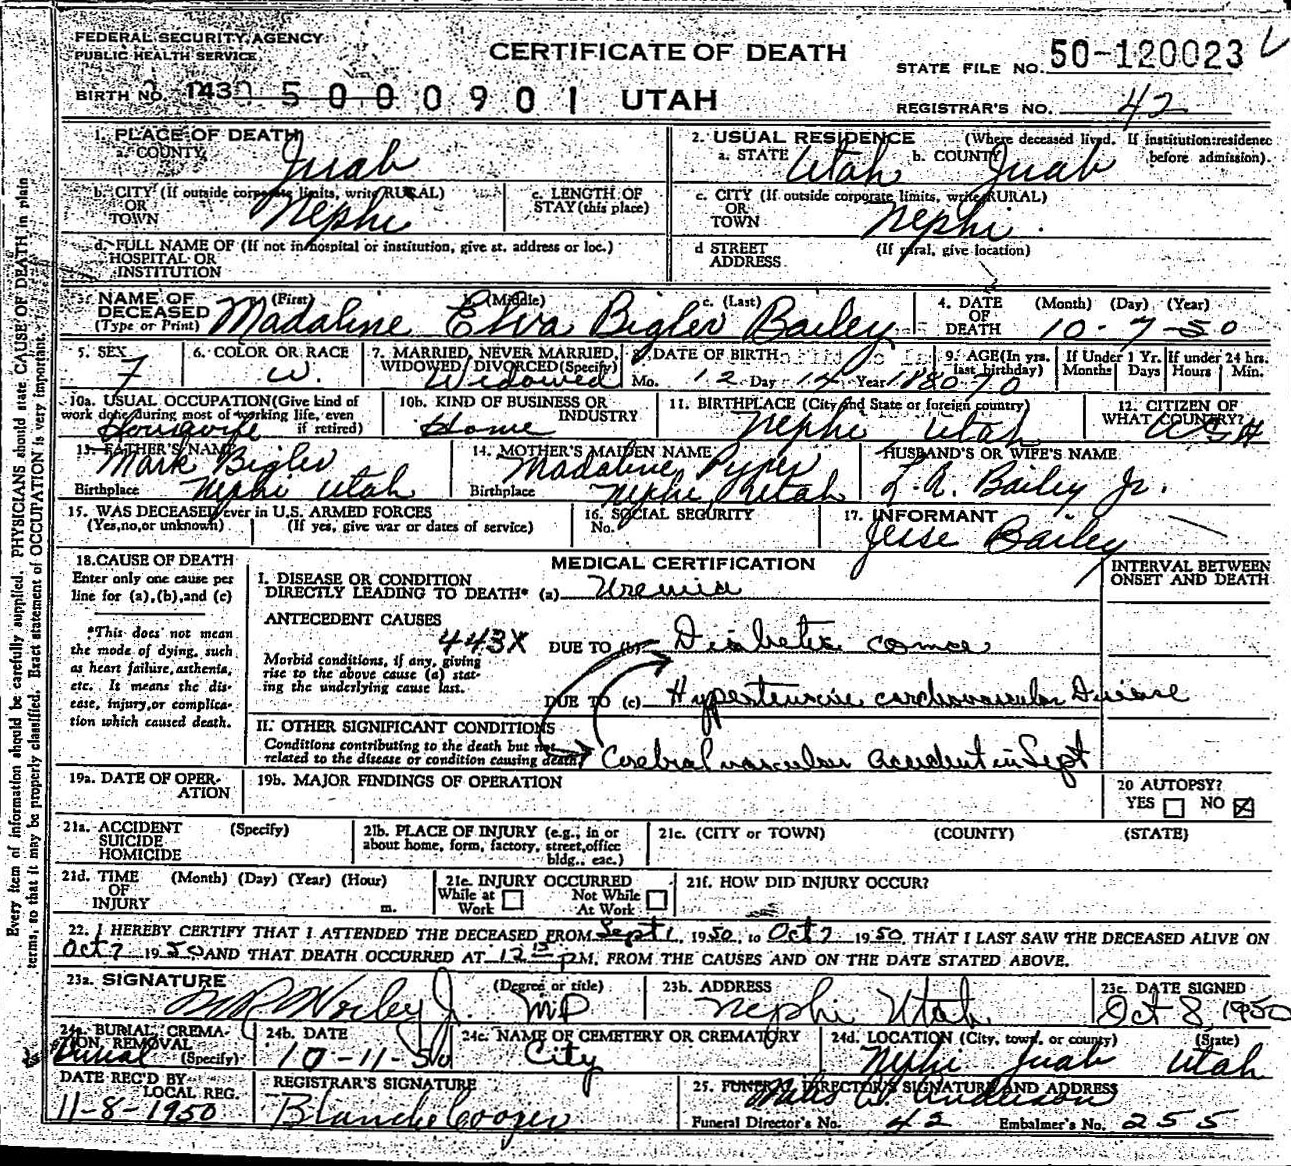 FEDERAL SECURITY AGENCY
PUBLIC HEALTH SERVICE
CERTIFICATE OF DEATH
STATE FILE NO. 50-120023
BIRTH NO. 143 5000901 UTAH
REGISTRAR'S NO. 42
1. PLACE OF DEATH
a. COUNTY Juab
2. USUAL RESIDENCE (Where deceased lived. If institution: residence before admission).
a. STATE Utah b. COUNTY Juab
b. CITY (If outside corporate limits, write RURAL) OR TOWN Nephi
c. LENGTH OF STAY (this place)
c. CITY (If outside corporate limits, write RURAL) OR TOWN Nephi
d. FULL NAME OF (If not in hospital or institution, give st. address or loc.) HOSPITAL OR INSTITUTION
d STREET ADDRESS (If rural, give location)
3. NAME OF DECEASED (Type or Print) (First) (Middle) c. (Last)
Madaline Elva Bigler Bailey
4. DATE OF DEATH (Month) (Day) (Year) 10-7-50
5. SEX F
6. COLOR OR RACE W.
7. MARRIED, NEVER MARRIED, WIDOWED, DIVORCED (Specify) Widowed
8. DATE OF BIRTH Mo. 12 Day 14 Year 1880
9. AGE (In yrs. last birthday) 70
If Under 1 Yr. Months Days
If under 24 hrs. Hours Min.
10a. USUAL OCCUPATION (Give kind of work done during most of working life, even if retired) Housewife
10b. KIND OF BUSINESS OR INDUSTRY Home
11. BIRTHPLACE (City and State or foreign country) Nephi Utah
12. CITIZEN OF WHAT COUNTRY? USA
13. FATHER'S NAME Mark Bigler
Birthplace Nephi Utah
14. MOTHER'S MAIDEN NAME Madaline Pyper
Birthplace Nephi Utah
HUSBAND'S OR WIFE'S NAME
L. A. Bailey Jr.
15. WAS DECEASED ever in U.S. ARMED FORCES (Yes, no, or unknown) (If yes, give war or dates of service)
16. SOCIAL SECURITY No.
17. INFORMANT
Jesse Bailey
18. CAUSE OF DEATH
Enter only one cause per line for (a), (b), and (c)
*This does not mean the mode of dying, such as heart failure, asthenia, etc. It means the disease, injury, or complication which caused death.
MEDICAL CERTIFICATION
INTERVAL BETWEEN ONSET AND DEATH
I. DISEASE OR CONDITION DIRECTLY LEADING TO DEATH* (a) Uremia
ANTECEDENT CAUSES
443X DUE TO (b) Diabetic coma
Morbid conditions, if any, giving rise to the above cause (a) stating the underlying cause last.
DUE TO (c) Hypertensive cardiovascular Disease
II. OTHER SIGNIFICANT CONDITIONS
Conditions contributing to the death but not related to the disease or condition causing death. Cerebral vascular accident in Sept
19a. DATE OF OPERATION
19b. MAJOR FINDINGS OF OPERATION
20 AUTOPSY? YES NO
21a. ACCIDENT SUICIDE HOMICIDE (Specify)
21b. PLACE OF INJURY (e.g., in or about home, form, factory, street, office bldg., eac.)
21c. (CITY or TOWN) (COUNTY) (STATE)
21d. TIME OF INJURY (Month) (Day) (Year) (Hour) m.
21e. INJURY OCCURRED While at Work Not While At Work
21f. HOW DID INJURY OCCUR?
22. I HEREBY CERTIFY THAT I ATTENDED THE DECEASED FROM Sept 1, 1950, to Oct 7 1950, THAT I LAST SAW THE DECEASED ALIVE ON
Oct 7 1950 AND THAT DEATH OCCURRED AT 12 PM. FROM THE CAUSES AND ON THE DATE STATED ABOVE.
23a. SIGNATURE (Degree or title) Worley Jr. MD
23b. ADDRESS Nephi Utah
23c. DATE SIGNED Oct 8, 1950
24a. BURIAL, CREMATION, REMOVAL (Specify) Burial
24b. DATE 10-11-50
24c. NAME OF CEMETERY OR CREMATORY City
24d. LOCATION (City, town, or county) (State)
Nephi Juab Utah
DATE REC'D BY LOCAL REG.
11-8-1950
REGISTRAR'S SIGNATURE
Blanche Cooper
25. FUNERAL DIRECTOR'S SIGNATURE AND ADDRESS
Anderson
Funeral Director's No. 42 Embalmer's No. 255
Every item of information should be carefully supplied. PHYSICIANS should state CAUSE OF DEATH in plain
terms, so that it may be properly classified. Exact statement of OCCUPATION is very important.